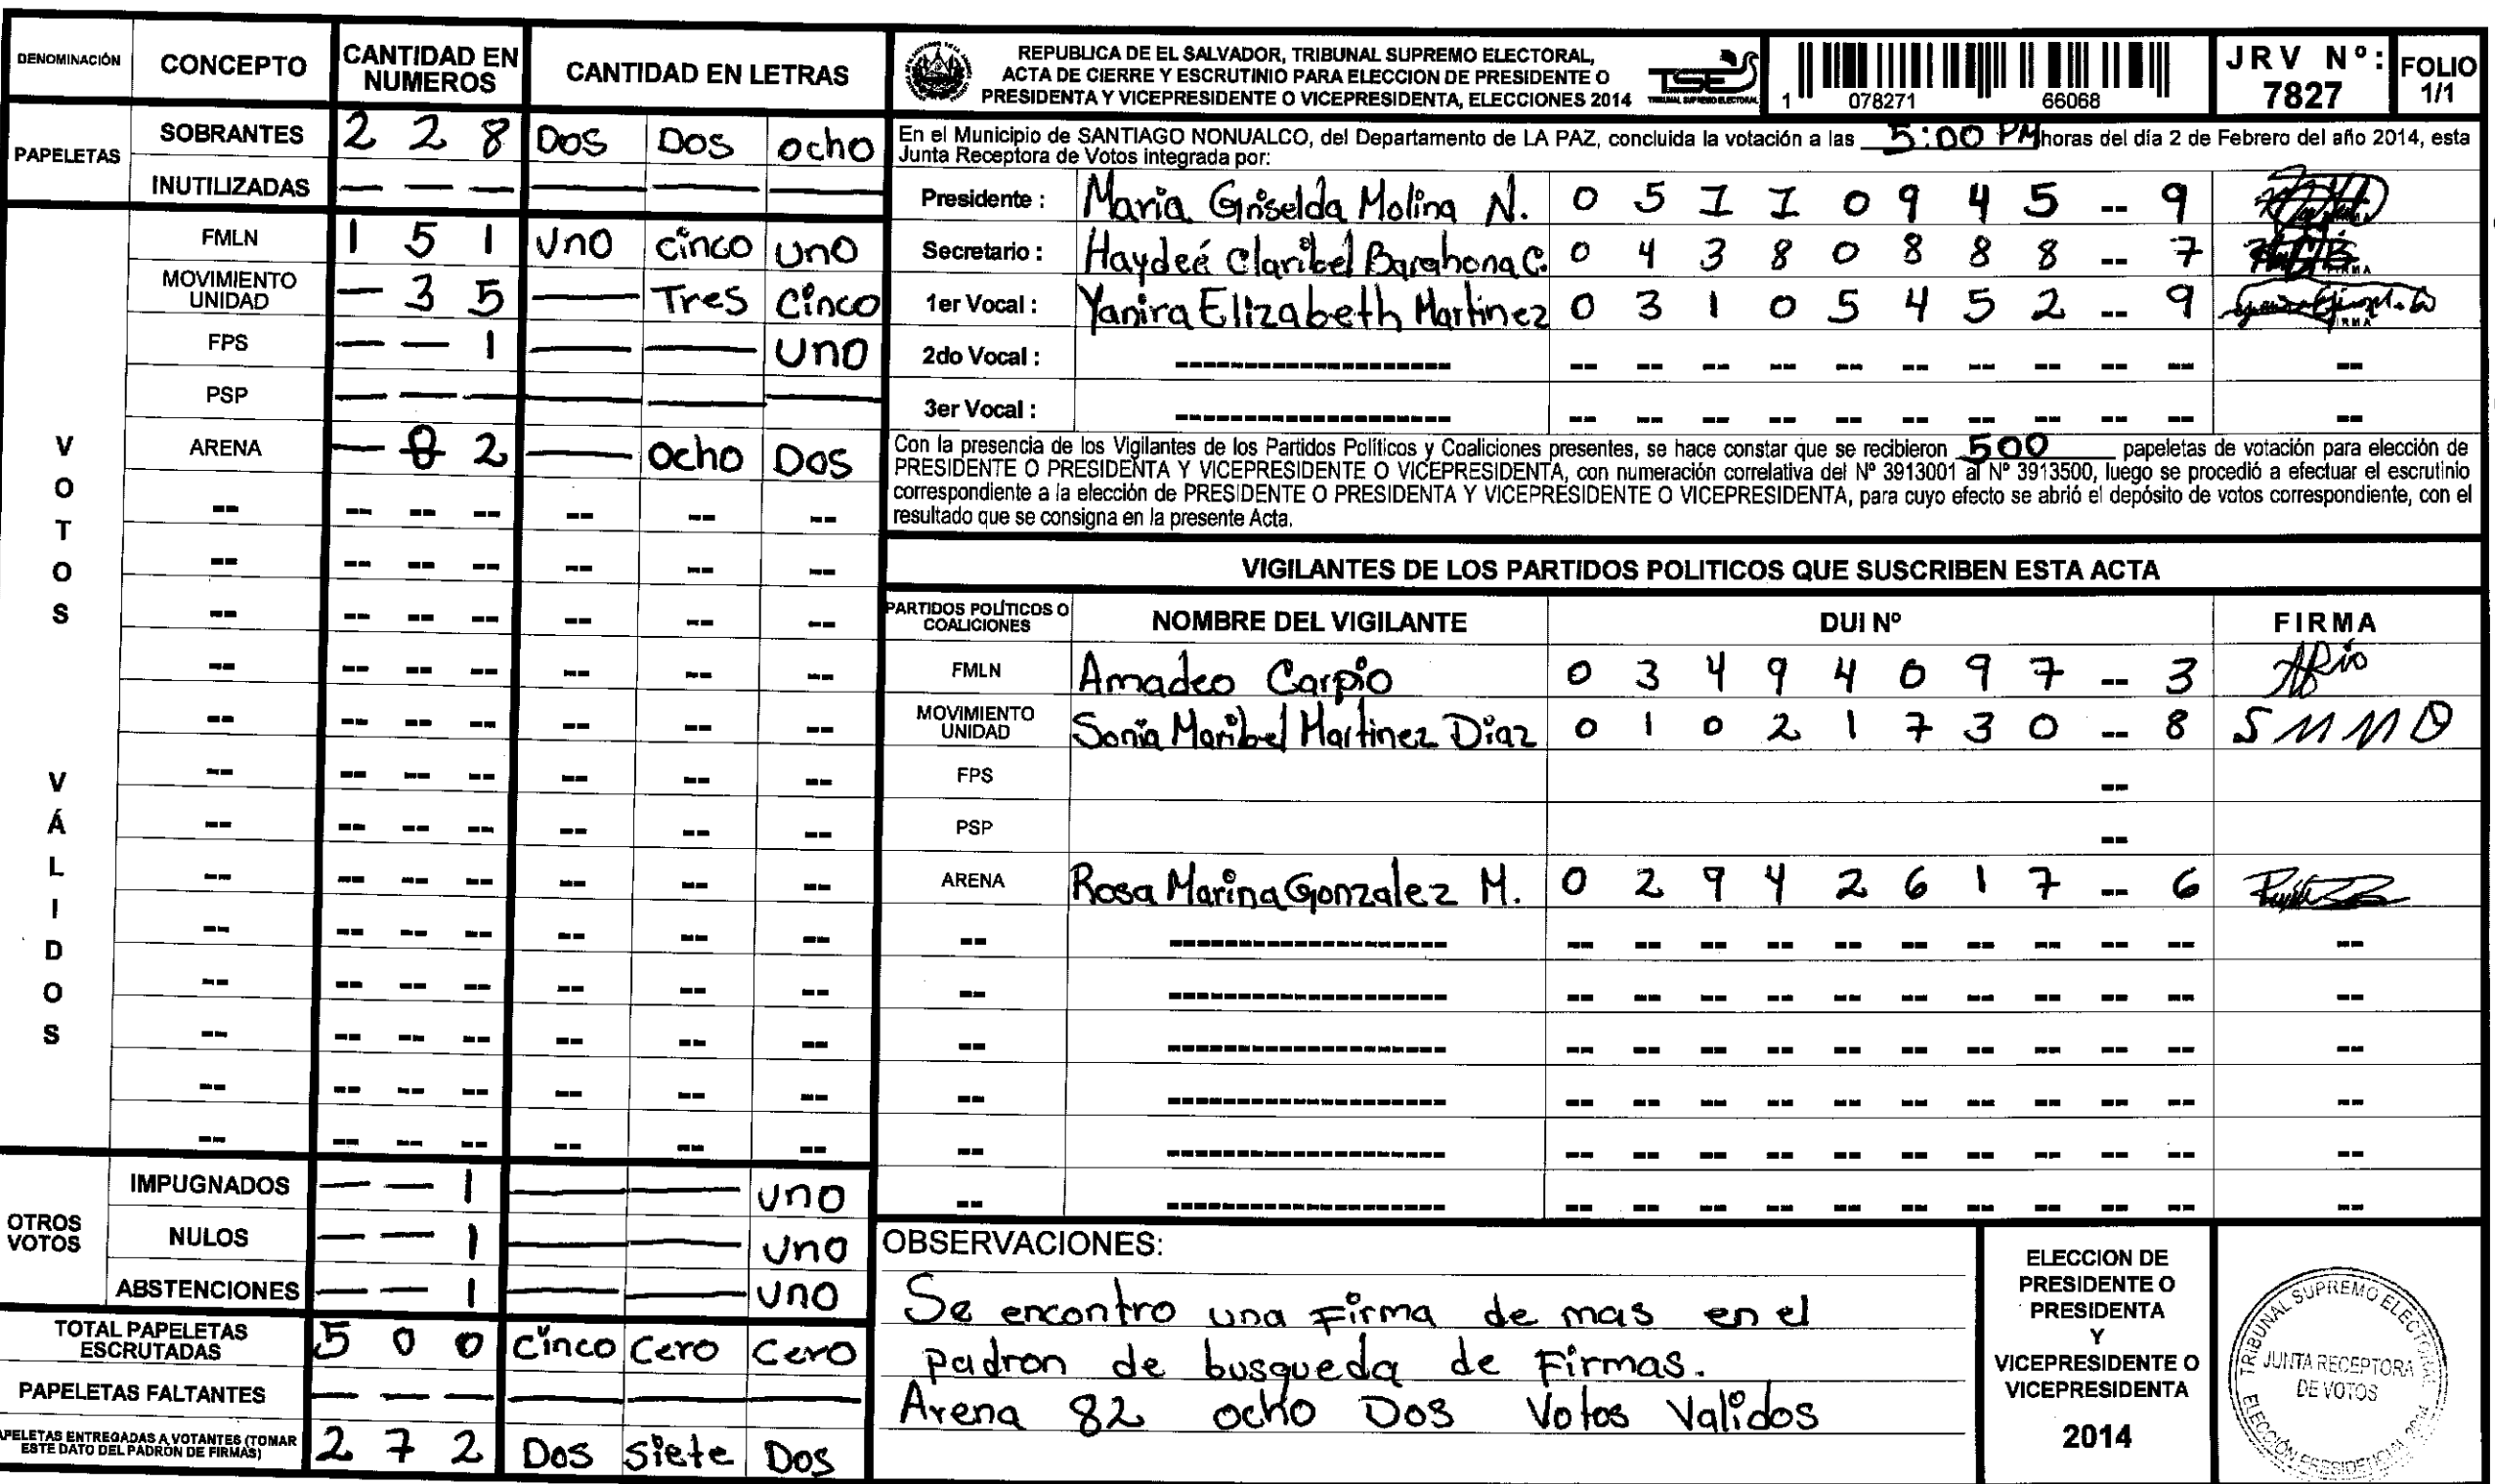 DENOMINACIÓN CONCEPTO CANTIDAD EN NUMEROS CANTIDAD EN LETRAS
PAPELETAS
SOBRANTES 2 2 8 Dos Dos ocho
INUTILIZADAS — — — — — —
VOTOS VÁLIDOS
FMLN 1 5 1 Uno cinco Uno
MOVIMIENTO UNIDAD — 3 5 — Tres Cinco
FPS — — 1 — — Uno
PSP — — — — — —
ARENA — 8 2 — Ocho Dos
-- -- -- -- -- -- --
-- -- -- -- -- -- --
-- -- -- -- -- -- --
-- -- -- -- -- -- --
-- -- -- -- -- -- --
-- -- -- -- -- -- --
-- -- -- -- -- -- --
-- -- -- -- -- -- --
-- -- -- -- -- -- --
-- -- -- -- -- -- --
-- -- -- -- -- -- --
-- -- -- -- -- -- --
-- -- -- -- -- -- --
OTROS VOTOS
IMPUGNADOS — — 1 — — Uno
NULOS — — 1 — — Uno
ABSTENCIONES — — 1 — — Uno
TOTAL PAPELETAS ESCRUTADAS 5 0 0 Cinco Cero Cero
PAPELETAS FALTANTES — — — — — —
PAPELETAS ENTREGADAS A VOTANTES (TOMAR
ESTE DATO DEL PADRÓN DE FIRMAS) 2 7 2 Dos Siete Dos
REPUBLICA DE EL SALVADOR, TRIBUNAL SUPREMO ELECTORAL,
ACTA DE CIERRE Y ESCRUTINIO PARA ELECCION DE PRESIDENTE O
PRESIDENTA Y VICEPRESIDENTE O VICEPRESIDENTA, ELECCIONES 2014
TSE
TRIBUNAL SUPREMO ELECTORAL
1 078271 66068
JRV Nº: 7827
FOLIO 1/1
En el Municipio de SANTIAGO NONUALCO, del Departamento de LA PAZ, concluida la votación a las 5:00 PM horas del día 2 de Febrero del año 2014, esta
Junta Receptora de Votos integrada por:
Presidente : Maria Griselda Molina N. 0 5 1 1 0 9 4 5 -- 9
Secretario : Haydeé Claribel Barahona C. 0 4 3 8 0 8 8 8 -- 7
1er Vocal : Yanira Elizabeth Martinez 0 3 1 0 5 4 5 2 -- 9
2do Vocal : -------------------- -- -- -- -- -- -- -- -- -- -- --
3er Vocal : -------------------- -- -- -- -- -- -- -- -- -- -- --
Con la presencia de los Vigilantes de los Partidos Políticos y Coaliciones presentes, se hace constar que se recibieron 500 papeletas de votación para elección de
PRESIDENTE O PRESIDENTA Y VICEPRESIDENTE O VICEPRESIDENTA, con numeración correlativa del Nº 3913001 al Nº 3913500, luego se procedió a efectuar el escrutinio
correspondiente a la elección de PRESIDENTE O PRESIDENTA Y VICEPRESIDENTE O VICEPRESIDENTA, para cuyo efecto se abrió el depósito de votos correspondiente, con el
resultado que se consigna en la presente Acta.
VIGILANTES DE LOS PARTIDOS POLITICOS QUE SUSCRIBEN ESTA ACTA
PARTIDOS POLÍTICOS O COALICIONES NOMBRE DEL VIGILANTE DUI Nº FIRMA
FMLN Amadeo Carpio 0 3 4 9 4 0 9 7 -- 3
MOVIMIENTO UNIDAD Sonia Maribel Martinez Diaz 0 1 0 2 1 7 3 0 -- 8 SMMD
FPS --
PSP --
ARENA Rosa Marina Gonzalez M. 0 2 9 4 2 6 1 7 -- 6
-- -------------------- -- -- -- -- -- -- -- -- -- -- --
-- -------------------- -- -- -- -- -- -- -- -- -- -- --
-- -------------------- -- -- -- -- -- -- -- -- -- -- --
-- -------------------- -- -- -- -- -- -- -- -- -- -- --
-- -------------------- -- -- -- -- -- -- -- -- -- -- --
-- -------------------- -- -- -- -- -- -- -- -- -- -- --
OBSERVACIONES:
Se encontro una Firma de mas en el
padron de busqueda de Firmas.
Arena 82 ocho Dos Votos Validos
ELECCION DE
PRESIDENTE O
PRESIDENTA
Y
VICEPRESIDENTE O
VICEPRESIDENTA
2014
TRIBUNAL SUPREMO ELECTORAL
JUNTA RECEPTORA
DE VOTOS
ELECCIÓN PRESIDENCIAL 2014